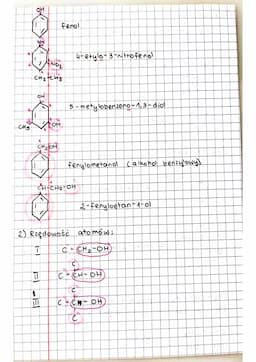 OH
fenol
OH
NO₂
CH₂-CH₃
4-etylo-3-nitrofenol
OH
CH₃
OH
5-metylobenzeno-1,3-diol
CH₂OH
fenylometanol (alkohol benzylowy)
CH-CH₂-OH
2-fenyloetan-1-ol
2) Rzędowość atomów:
I C-CH₂-OH
C
II C-CH-OH
C
III C-C-OH
C